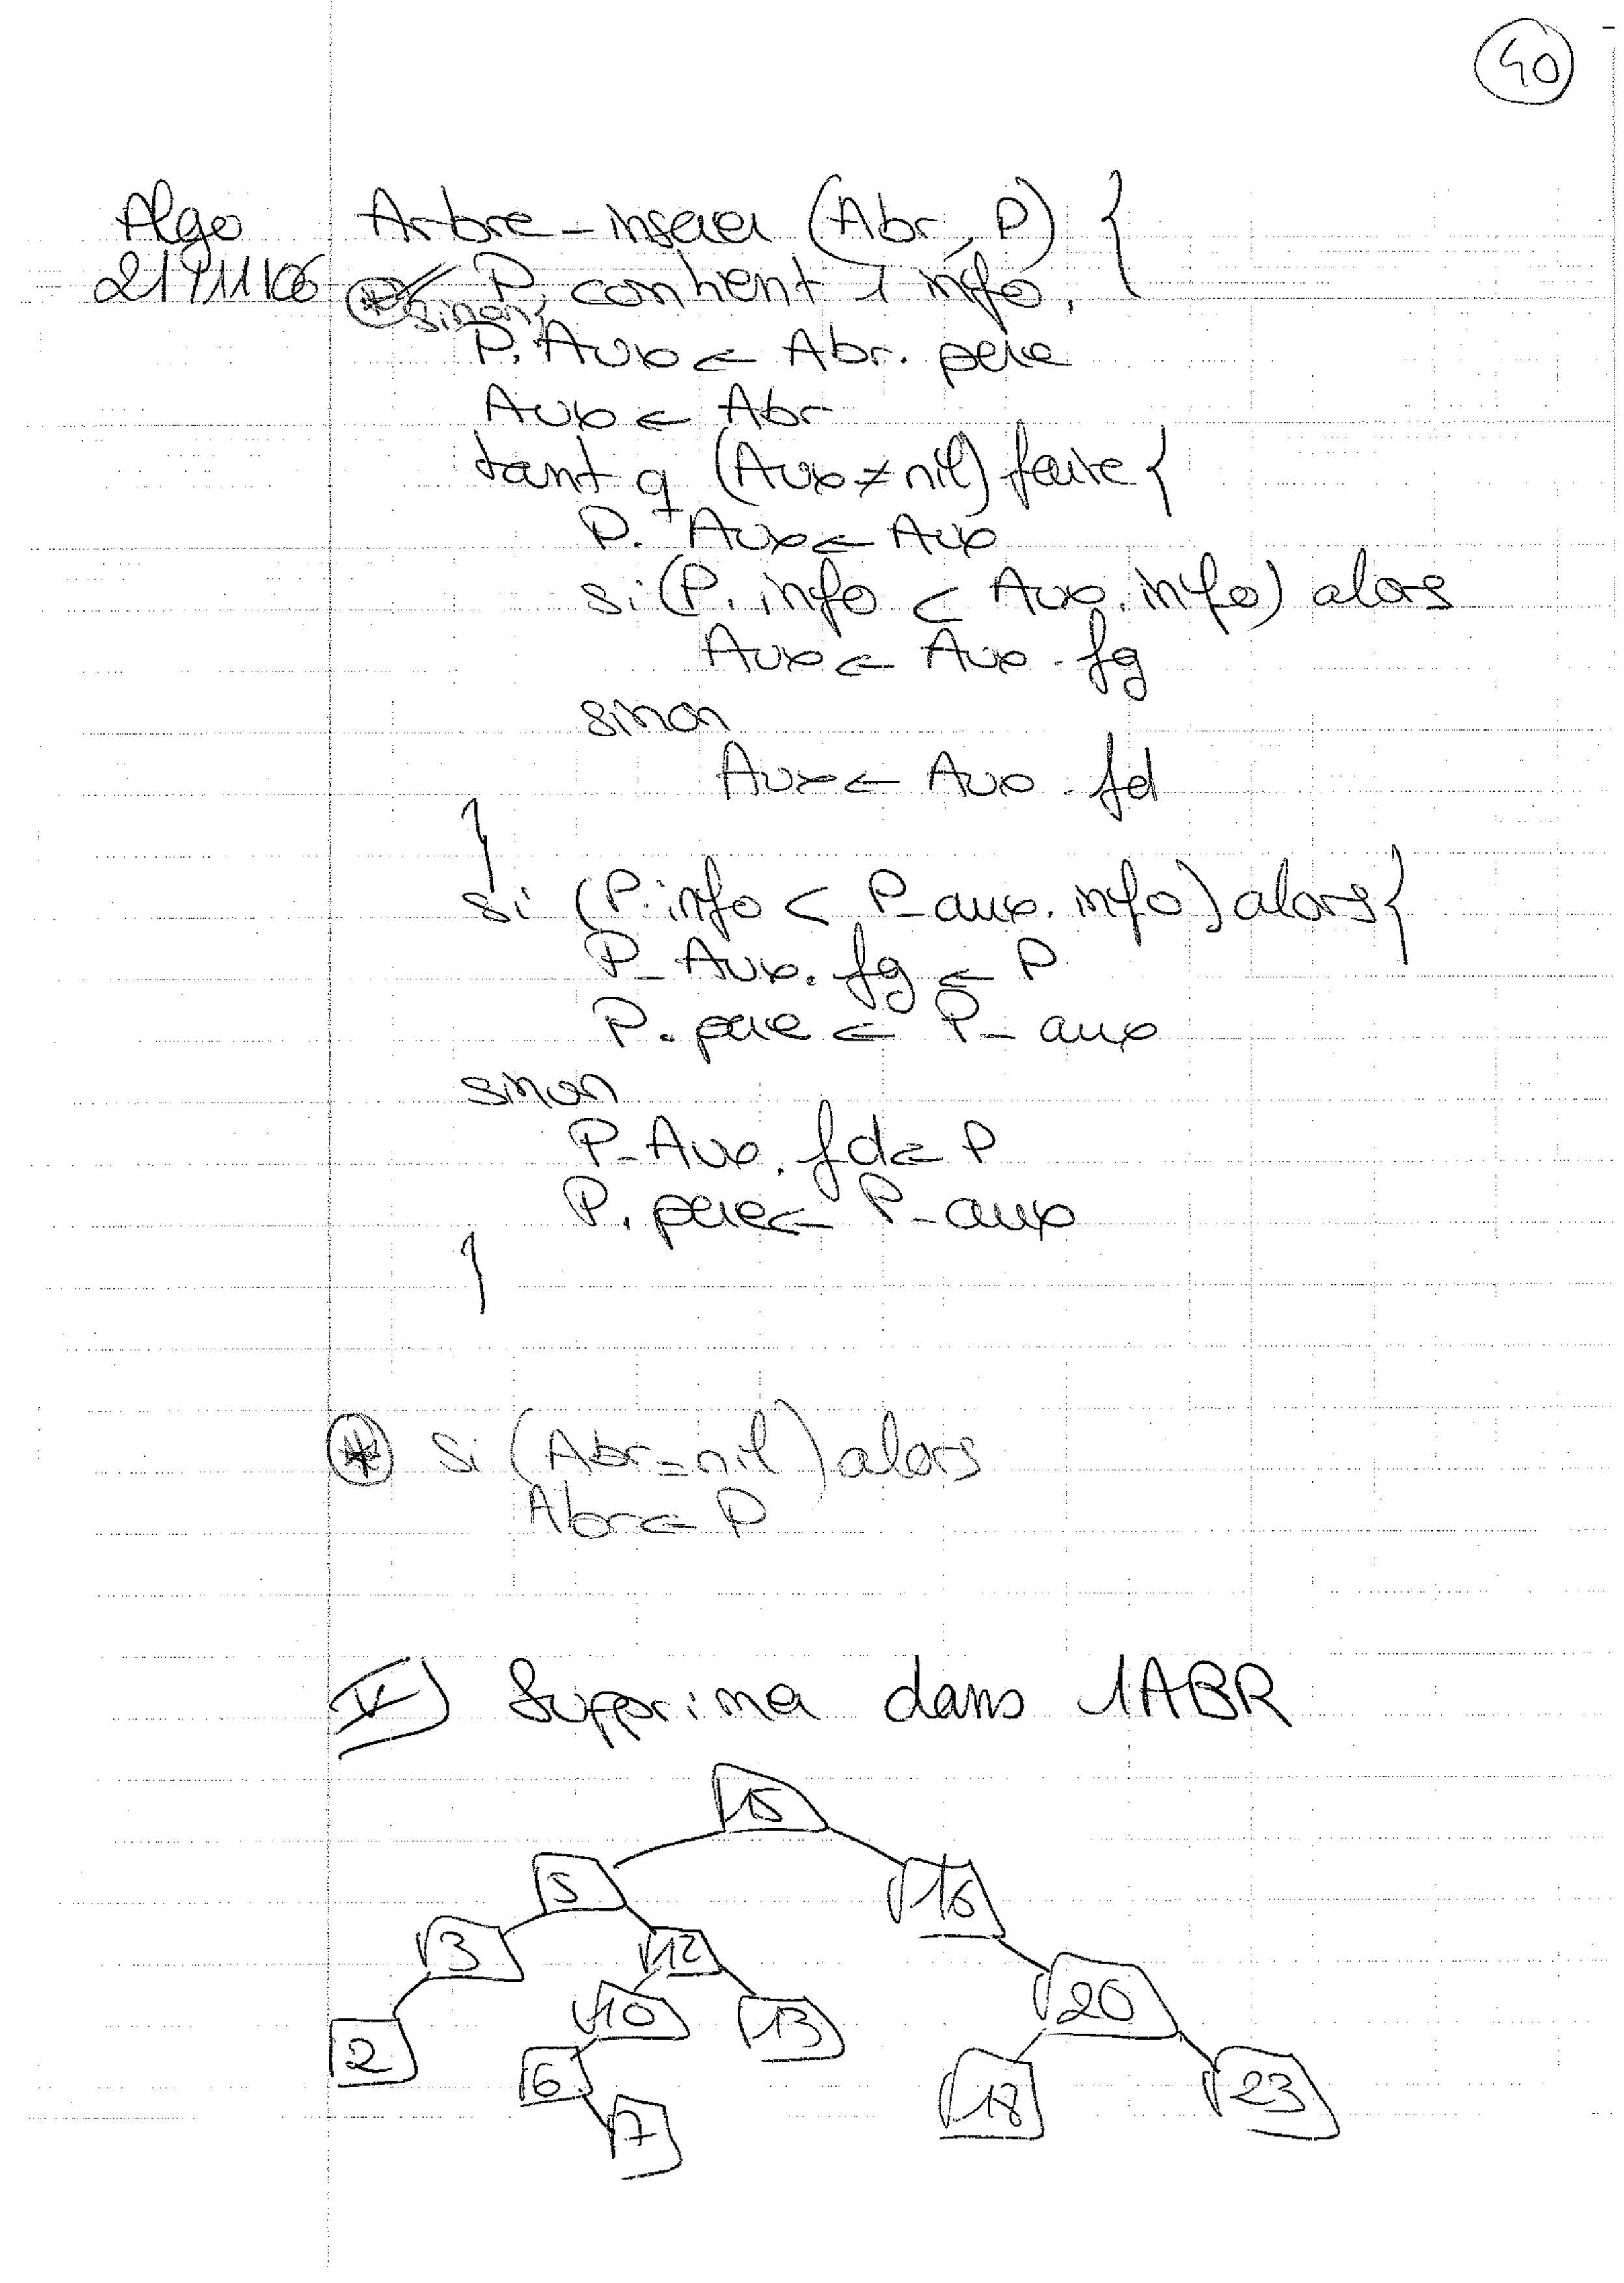 40
Algo
21/11/06
Arbre-inserer (Abr, P) {
* sinon{
P contient 1 info.
P. Aux ← Abr. pere
Aux ← Abr
tant q (Aux ≠ nil) faire {
P. Aux ← Aux
si (P. info < Aux. info) alors
Aux ← Aux. fg
sinon
Aux ← Aux. fd
}
si (P. info < P_aux. info) alors {
P_Aux. fg ← P
P. pere ← P_aux
sinon
P_Aux. fd ← P
P. pere ← P_aux
}
* Si (Abr = nil) alors
Abr ← P
V) Supprimer dans 1ABR
15
5 16
3 12 20
2 10 13 18 23
6
7